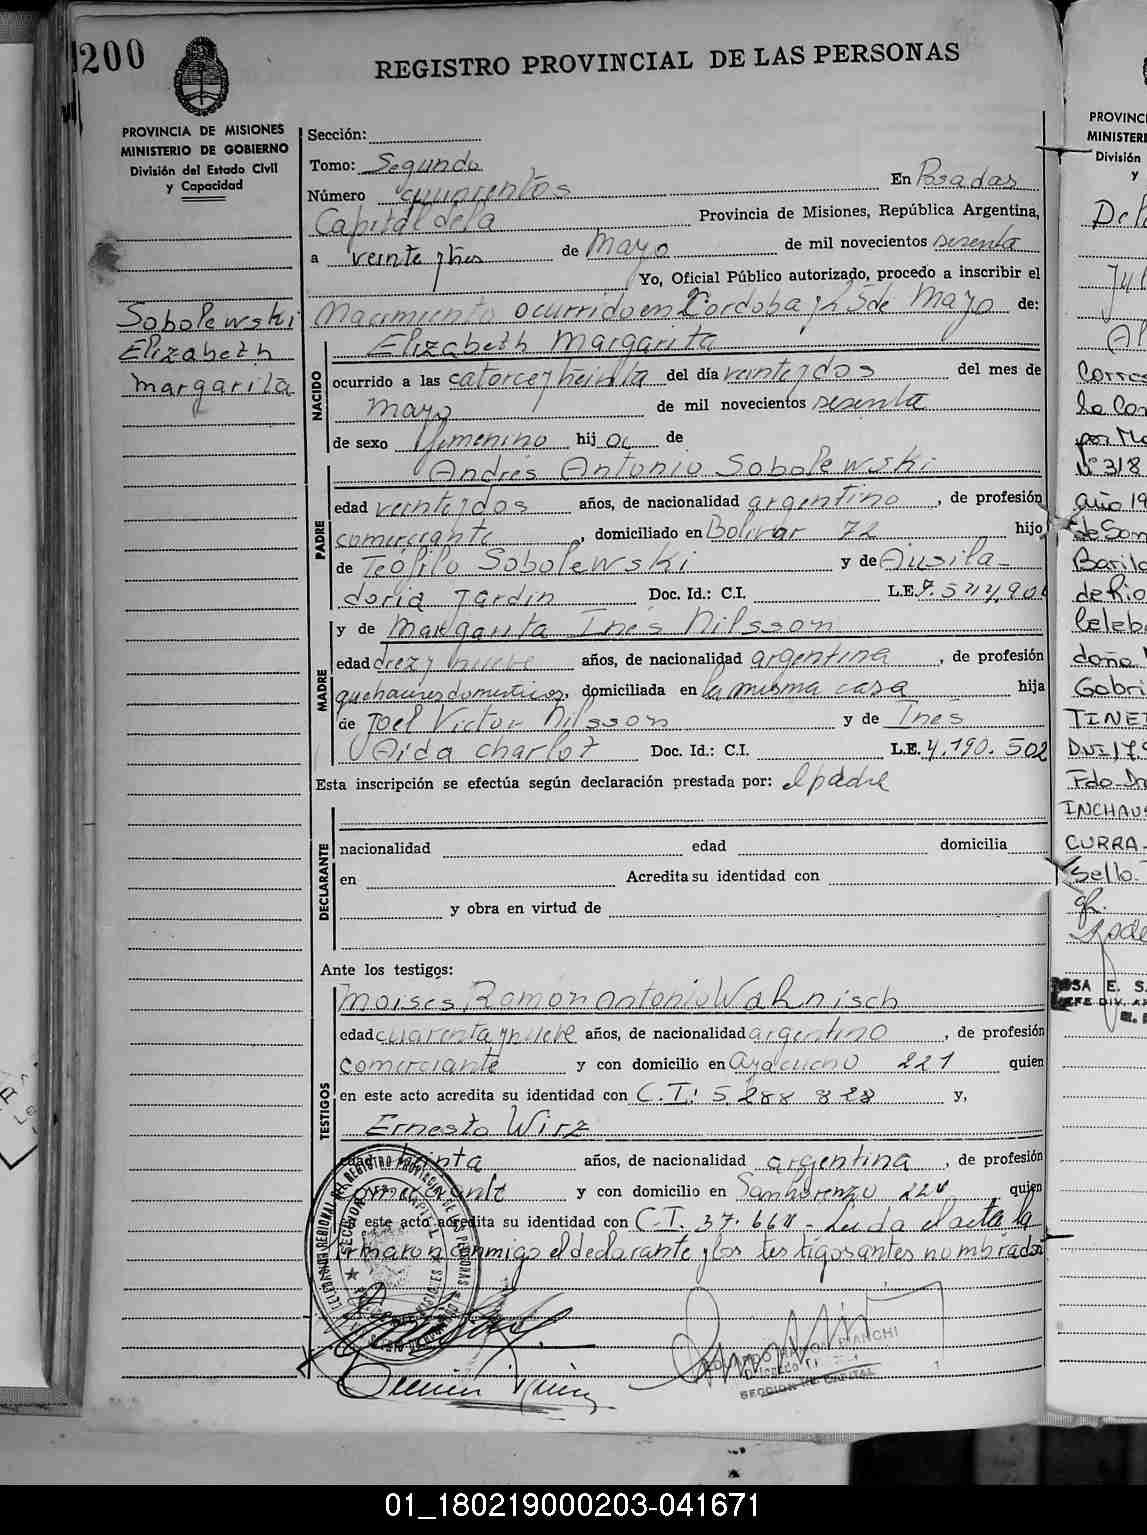 200
REGISTRO PROVINCIAL DE LAS PERSONAS
PROVINCIA DE MISIONES
MINISTERIO DE GOBIERNO
División del Estado Civil
y Capacidad
Sobolewski
Elizabeth
Margarita
Sección:
Tomo: Segundo
Número En Posadas
Capital de la Provincia de Misiones, República Argentina,
a veinte y tres de Mayo de mil novecientos sesenta
Yo, Oficial Público autorizado, procedo a inscribir el
Nacimiento ocurrido en Cordoba y 25 de Mayo de:
NACIDO
Elizabeth Margarita
ocurrido a las catorce y treinta del día veinte y dos del mes de
Mayo de mil novecientos sesenta
de sexo femenino hij a de
Andrés Antonio Sobolewski
PADRE
edad veinte y dos años, de nacionalidad argentino, de profesión
comerciante, domiciliado en Bolivar 72 hijo
de Teófilo Sobolewski y de Ausila-
doria Jardin Doc. Id.: C.I. L.E.
MADRE
y de Margarita Inés Nilsson
edad diez y nueve años, de nacionalidad argentina, de profesión
quehaceres domesticos, domiciliada en la misma casa hija
de Joel Victor Nilsson y de Inés
Aida Charlot Doc. Id.: C.I. L.E. 4.190.502
Esta inscripción se efectúa según declaración prestada por: el padre
DECLARANTE
nacionalidad edad domicilia
en Acredita su identidad con
y obra en virtud de
Ante los testigos:
TESTIGOS
Moises Ramon Antonio Wahnisch
edad cuarenta y nueve años, de nacionalidad argentino, de profesión
comerciante y con domicilio en Ayacucho 221 quien
en este acto acredita su identidad con C.I: 5.288 828 y,
Ernesto Wirz
edad treinta años, de nacionalidad argentina, de profesión
comerciante y con domicilio en San Lorenzo quien
este acto acredita su identidad con C.I. 37.661 - Leida el acta la
firmaron conmigo el declarante y los testigos antes nombrados
SECCION CAPITAL
PROVINC
MINISTERI
División
y
Corres
la Cor
por Mo
Nº 318
año 19
de Som
Barilo
de Rio
Celeb
doña
Gabri
TINEZ
INCHAUS
CURRA-
Sello.
OSA E. S.
01_180219000203-041671